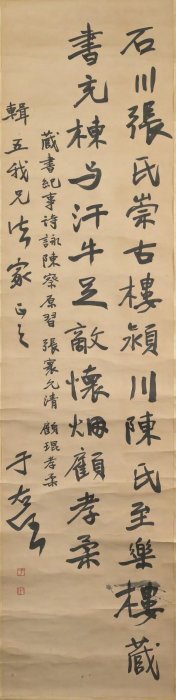 石川張氏崇古樓潁川陳氏至樂樓藏
書充棟与汗牛足敵懷烟顧孝柔
藏書紀事詩詠陳察原習張寰允清顧琨孝柔
輯五我兄法家正之
于右任